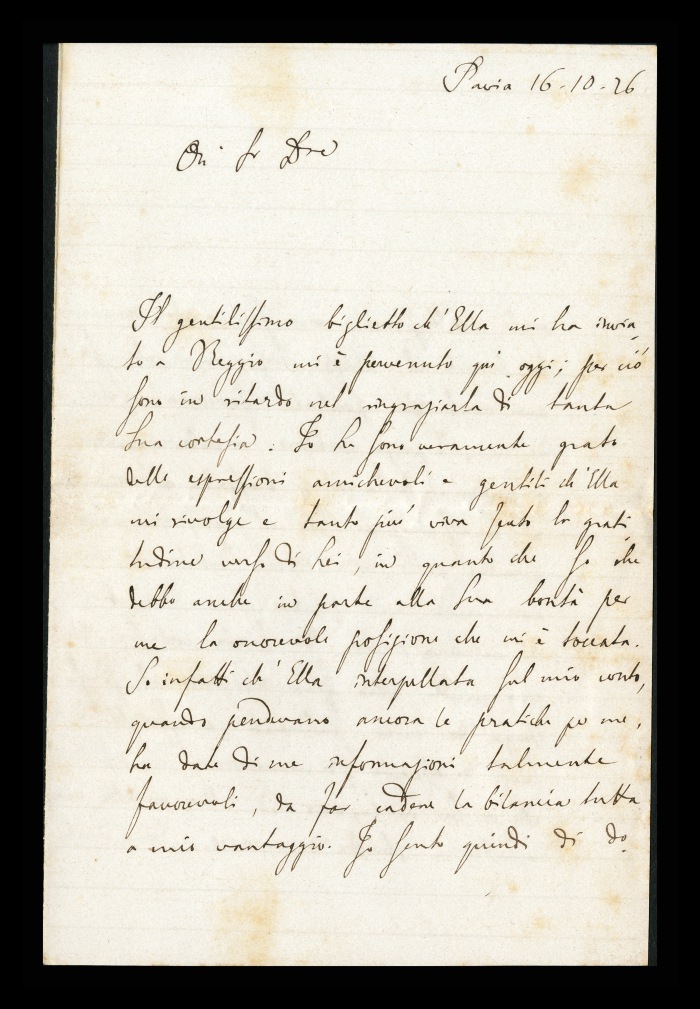 Pavia 16-10-76
On Sr Dre
Il gentilissimo biglietto ch'Ella mi ha invia
to a Reggio mi è pervenuto qui oggi; per ciò
sono in ritardo nel ringraziarla di tanta
Sua cortesia. Io Le sono veramente grato
delle espressioni amichevoli e gentili ch'Ella
mi rivolge e tanto più viva sento la grati
tudine verso di Lei, in quanto che so che
debbo anche in parte alla Sua bontà per
me la onorevole posizione che mi è toccata.
So infatti ch'Ella interpellata sul mio conto,
quando pendevano ancora le pratiche per me,
ha date di me informazioni talmente
favorevoli, da far cadere la bilancia tutta
a mio vantaggio. Io sento quindi di do